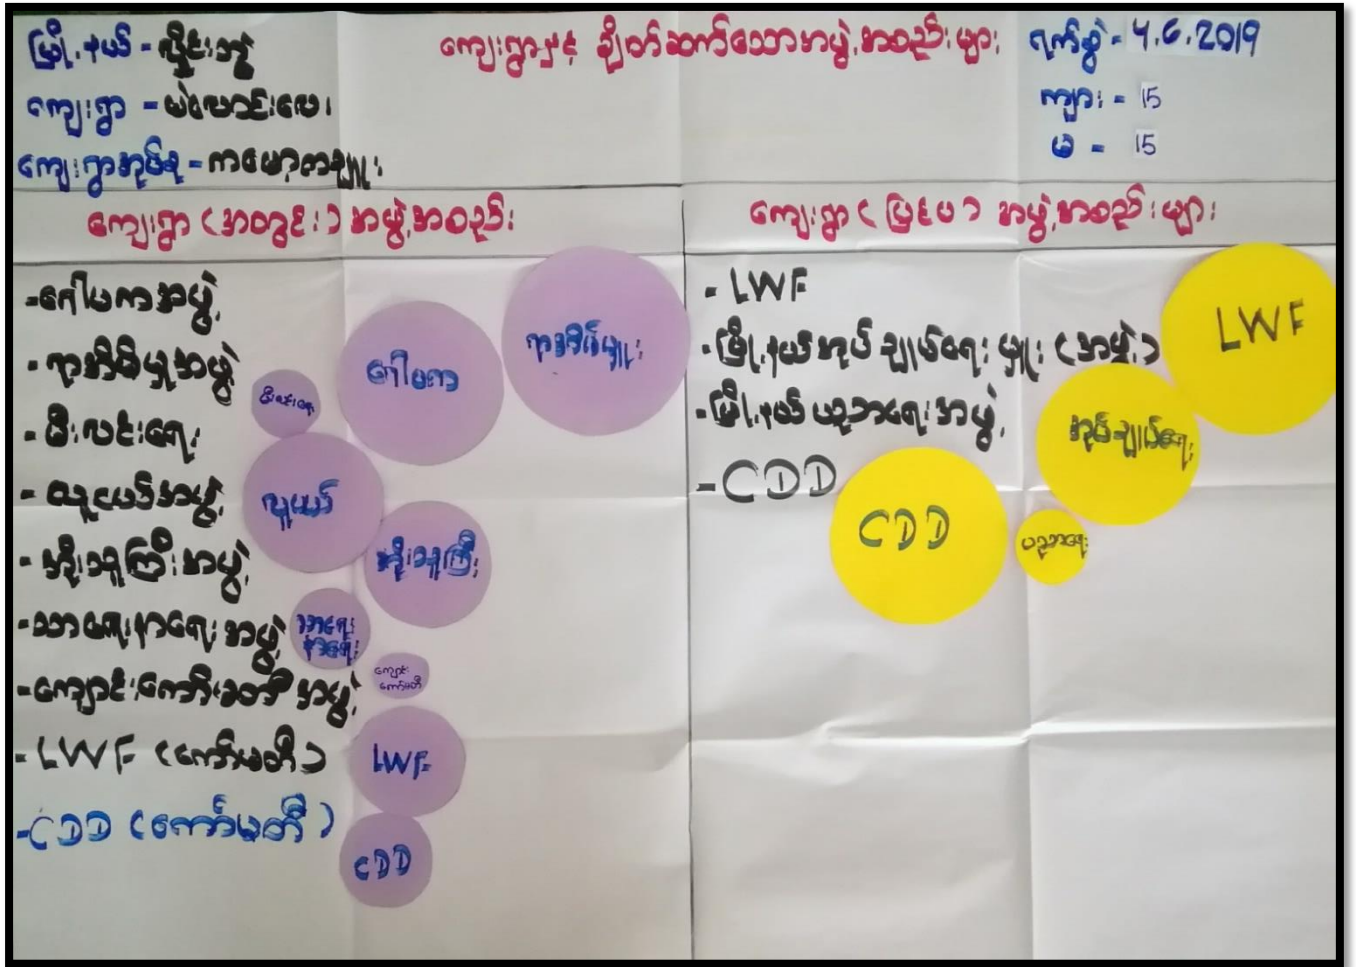 မြို့နယ် - လှိုင်းဘွဲ့
ကျေးရွာ -
ကျေးရွာအုပ်စု -
ကျေးရွာနှင့် ချိတ်ဆက်သောအဖွဲ့အစည်းများ
ရက်စွဲ - 4.6.2019
ကျား - 15
မ - 15
ကျေးရွာ (အတွင်း) အဖွဲ့အစည်း
- ဂေါပကအဖွဲ့
- ရာအိမ်မှူးအဖွဲ့
- မီးလင်းရေး
- လူငယ်အဖွဲ့
- အိုးသူကြီးအဖွဲ့
- သာရေးနာရေးအဖွဲ့
- ကျောင်းကော်မတီအဖွဲ့
- LWF (ကော်မတီ)
- CDD (ကော်မတီ)
ရာအိမ်မှူး
ဂေါပက
မီးလင်းရေး
လူငယ်
အိုးသူကြီး
သာရေး
နာရေး
ကျောင်း
ကော်မတီ
LWF
CDD
ကျေးရွာ (ပြင်ပ) အဖွဲ့အစည်းများ
- LWF
- မြို့နယ်အုပ်ချုပ်ရေးမှူး (အဖွဲ့)
- မြို့နယ်ပညာရေးအဖွဲ့
- CDD
LWF
အုပ်ချုပ်ရေး
CDD
ပညာရေး